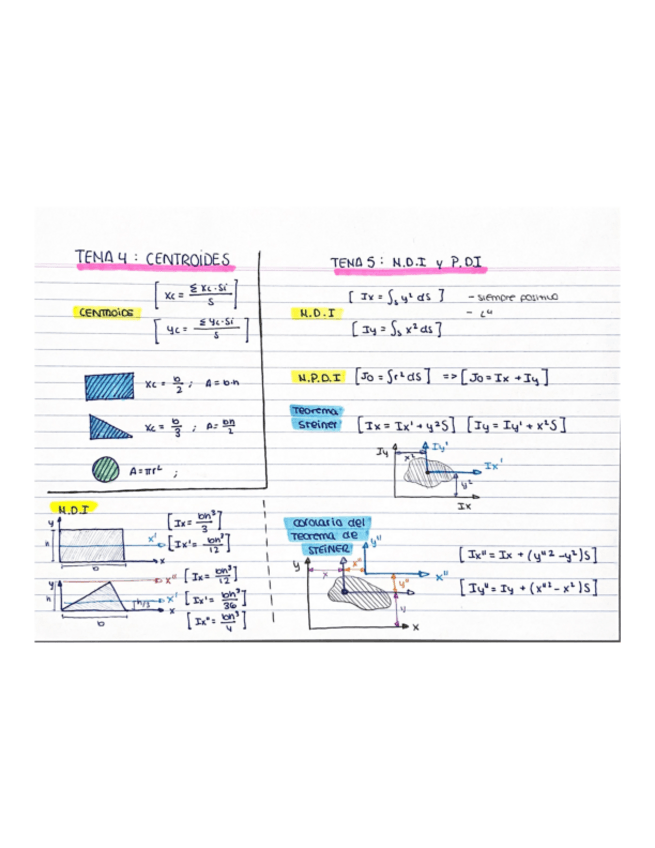 TEMA 4 : CENTROIDES
CENTROIDE
[ Xc = Σ Xc·Si / S ]
[ Yc = Σ Yc·Si / S ]
Xc = b/2 ; A = b·h
Xc = b/3 ; A = bh/2
A = πr² ;
M.D.I
y
h
x'
x
b
[ Ix = bh³/3 ]
[ Ix' = bh³/12 ]
y
h
x''
x'
h/3
x
b
[ Ix = bh³/12 ]
[ Ix' = bh³/36 ]
[ Ix'' = bh³/4 ]
TEMA 5 : M.D.I y P.DI
M.D.I
[ Ix = ∫s y² dS ] - siempre positivo
- L⁴
[ Iy = ∫s x² dS ]
M.P.D.I [ Jo = ∫r² dS ] => [ Jo = Ix + Iy ]
Teorema
Steiner [ Ix = Ix' + y²S ] [ Iy = Iy' + x²S ]
Iy
Iy'
x²
Ix'
y²
Ix
corolario del
Teorema de
STEINER
y
y''
x
x''
x''
y''
y
x
[ Ix'' = Ix + (y''² - y²)S ]
[ Iy'' = Iy + (x''² - x²)S ]